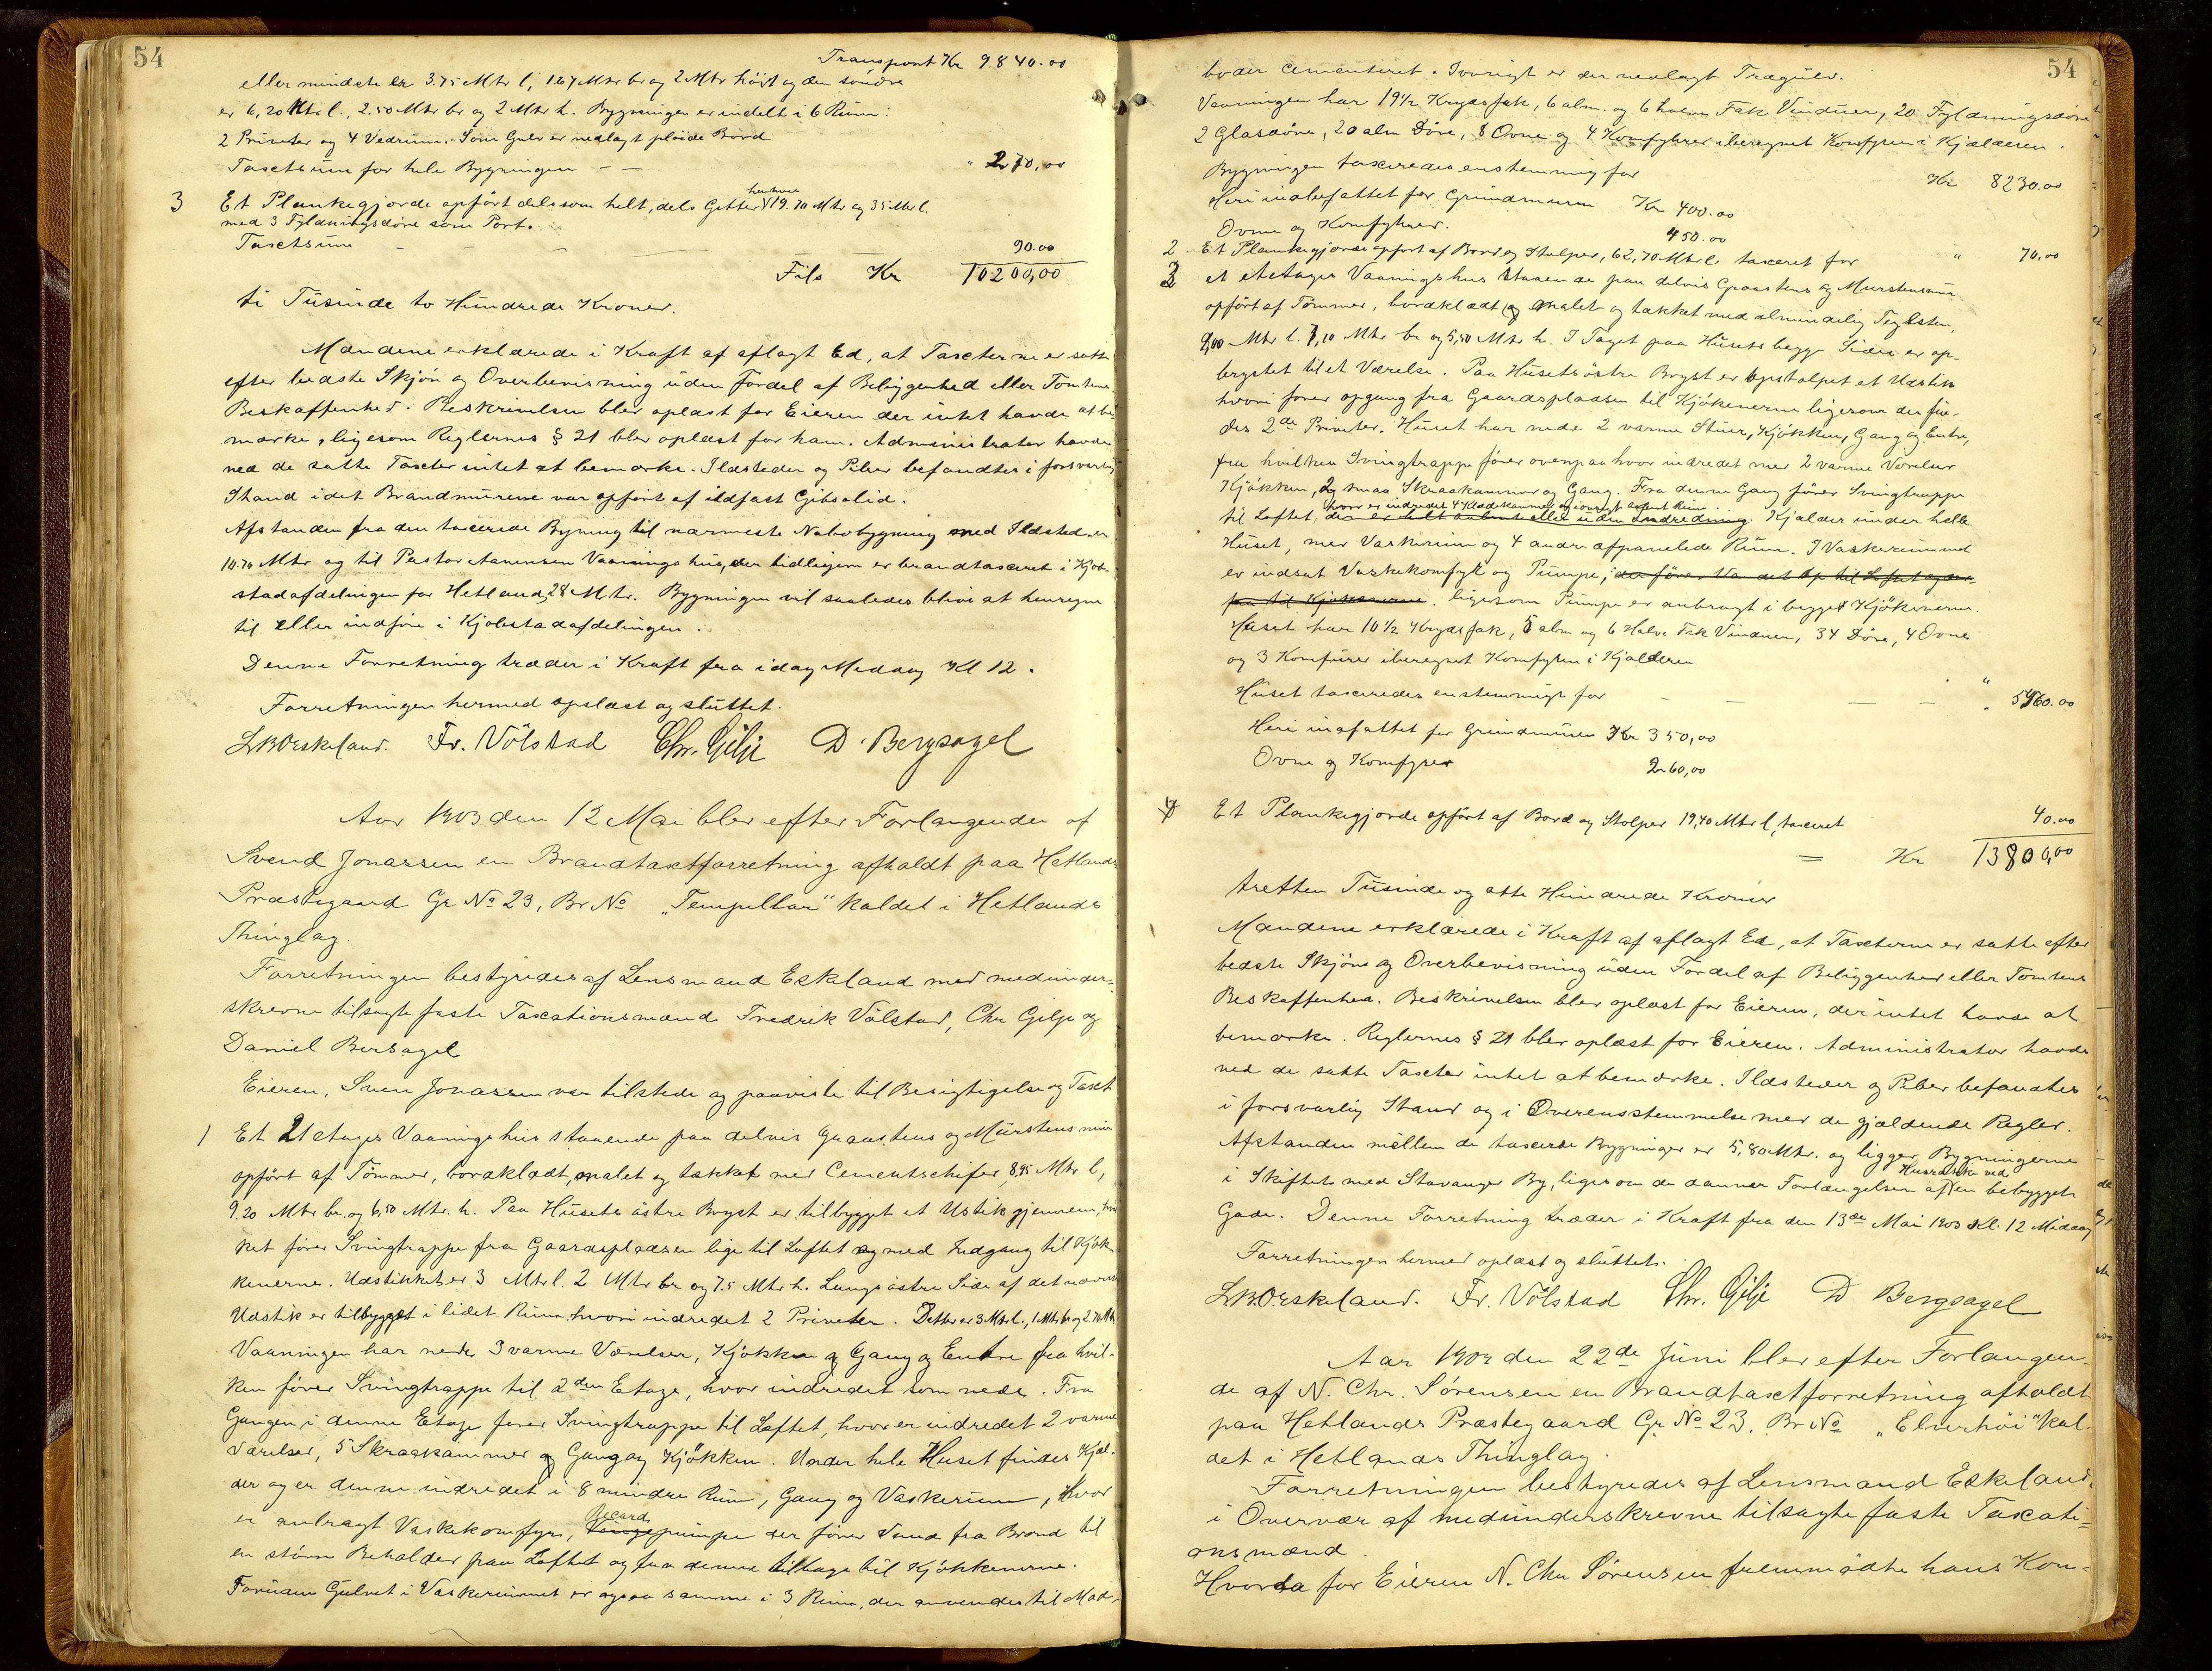 54
Transport Kr 9840.00
eller mindste er 3.75 Mtr l, 1.67 Mtr br og 2 Mtr höit og den söndre
er 6,20 Mtr l., 2.50 Mtr br og 2 Mtr h. Bygningen er indelt i 6 Rum:
2 Priveter og 4 Vedrum. Som Gulv er nedlagt plöide Bord
Taxtsum for hele Bygningen — — " 270,00
3 Et Plankegjerde opfört dels som helt, dels Gitter 19.70 Mtr og 35 Mtr l.
med 3 Fyldningsdöre som Port.
Taxtsum — — — 90.00
Tils Kr 10200,00
ti Tusinde to Hundrede Kroner.
Mændene erklærede i Kraft af aflagt Ed, at Taxterne er satte
efter bedste Skjön og Overbevisning uden Fordel af Beliggenhed eller Tomtens
Beskaffenhed. Beskrivelsen blev oplæst for Eieren der intet havde at be-
mærke, ligesom Reglernes § 21 blev oplæst for ham. Administrator havde
ved de satte Taxter intet at bemærke. Ildsteder og Piber befandtes i forsvarlig
Stand idet Brandmurene var opfört af ildfast Gibsolid.
Afstanden fra den taxerede Bygning til nærmeste Nabobygning med Ildsted er
10.70 Mtr og til Pastor Aanensen Vaaningshus, der tidligere er brandtaxeret i Kjöb-
stadafdelingen for Hetland, 28 Mtr. Bygningen vil saaledes blive at henregne
til eller indföre i Kjöbstadafdelingen.
Denne Forretning træder i Kraft fra idag Middag Kl 12.
Forretningen hermed oplæst og sluttet.
L. B. O. Eskeland. Fr. Völstad Chr. Gilje D. Bergsagel
Aar 1903 den 12 Mai blev efter Forlangende af
Svend Jonassen en Brandtaxtforretning afholdt paa Hetlands
Præstegaard Gr No 23, Br No „Tempeltun" kaldet i Hetlands
Thinglag.
Forretningen bestyredes af Lensmand Eskeland med medunder-
skrevne tilsagte faste Taxationsmænd Fredrik Völstad, Chr Gilje og
Daniel Bersagel
Eieren, Sven Jonassen var tilstede og paaviste til Besigtigelse og Taxt
1 Et 2 etages Vaaningshus staaende paa delvis Graastens og Murstensmur
opfört af Tömmer, bordklædt, malet og tækket med Cementschifer, 8,95 Mtr l,
9.20 Mtr br. og 6,50 Mtr. h. Paa Husets östre Bryst er tilbygget et Ustik gjennem, hvil
ket förer Svingtrappe fra Gaardspladsen lige til Loftet og med Indgang til Kjök-
kenerne. Udstikket er 3 Mtr l. 2 Mtr br og 7.5 Mtr h. Langs östre Side af det nævnte
Udstik er tilbygget i lidet Rum hvori indredet 2 Priveter. Dette er 3 Mtr l., 1 Mtr br og 2.70 Mtr h
Vaaningen har nede 3 varme Værelser, Kjökken og Gang og Entre fra hvil-
ken förer Svingtrappe til 2den Etage, hvor indredet som nede. Fra
Gangen i denne Etage förer Svingtrappe til Loftet, hvor er indredet 2 varme
Værelser, 5 Skraakammer og Gang og Kjökken. Under hele Huset findes Kjæl-
der og er denne indredet i 8 mindre Rum, Gang og Vaskerum, hvor
er anbragt Vaskekomfyr, pumpe der förer Vand fra Brönd til
en större Beholder paa Loftet og fra denne tilbage til Kjökkenerne.
Foruden Gulvet i Vaskerummet er ogsaa samme i 3 Rum, der anvendes til Mad-
54
boder cementeret. Iövrigt er der nedlagt Trægulv.
Vaaningen har 19½ Krydsfak, 6 alm. og 6 halve Fak Vinduer, 20 Fyldningsdöre
2 Glasdöre, 20 alm Döre, 8 Ovne og 4 Komfyrer iberegnet Komfyren i Kjælderen.
Bygningen taxeredes enstemmig for Kr 8230.00
Heri indbefattet for Grundmuren Kr 400.00
Ovne og Komfyrer. 450.00
2 Et Plankegjerde opfört af Bord og Stolper, 62,70 Mtr l. taxeret for " 70,00
3 et etetages Vaaningshus staaende paa delvis Graastens og Murstensmur
opfört af Tömmer, bordklædt og malet og tækket med almindelig Teglsten,
9,00 Mtr l. 7,10 Mtr br og 5,50 Mtr h. I Taget paa Husets begge Sider er op-
brystet til et Værelse. Paa Husets östre Bryst er opstolpet et Udstik
hvori förer opgang fra Gaardspladsen til Kjökkenerne ligesom der fin-
des 2de Priveter. Huset har nede 2 varme Stuer, Kjökken, Gang og Entre,
fra hvilken Svingtrappe förer ovenpaa hvor indredet med 2 varme Værelser
Kjökken, 2 smaa Skraakammer og Gang. Fra denne Gang förer Svingtrappe
hvor er indredet 4 Klædekammer og iövrigt aabent Rum
til Loftet, der er helt aabent eller uden Indredning. Kjælder under hele
Huset, med Vaskerum og 4 andre afpanelede Rum. I Vaskerummet
er indsat Vaskekomfyr og Pumpe, der förer Vandet op til Loftet og der-
fra til Kjökkenerne. ligesom Pumpe er anbragt i begge Kjökkenerne.
Huset har 10½ Krydsfak, 5 alm og 6 Halve Fak Vinduer, 34 Döre, 4 Ovne
og 3 Komfurer iberegnet Komfyren i Kjælderen
Huset taxeredes enstemmigt for — — — — " 5460.00
Heri indfattet for Grundmuren Kr 350,00
Ovne og Komfyrer 260,00
4 Et Plankegjerde opfört af Bord og Stolper 19,40 Mtr l, taxeret 40.00
= Kr 13800,00
tretten Tusinde og otte Hundrede Kroner
Mændene erklærede i Kraft af aflagt Ed, at Taxterne er satte efter
bedste Skjön og Overbevisning uden Fordel af Beliggenhed eller Tomtens
Beskaffenhed. Beskrivelsen blev oplæst for Eieren, der intet havde at
bemærke. Reglernes § 21 blev oplæst for Eieren. Administrator havde
ved de satte Taxter intet at bemærke. Ildsteder og Piber befandtes
i forsvarlig Stand og i Overensstemmelse med de gjældende Regler.
Afstanden mellem de taxerede Bygninger er 5,80 Mtr. og ligger Bygningerne
Husrække ved
i Skiftet med Stavanger By, ligesom de danner Forlængelsen af en bebygget
Gade. Denne Forretning træder i Kraft fra den 13de Mai 1903 Kl. 12 Middag
Forretningen hermed oplæst og sluttet.
L. B. O. Eskeland. Fr. Völstad Chr. Gilje D Bergsagel
Aar 1903 den 22de Juni blev efter Forlangen-
de af N. Chr. Sörensen en Brandtaxtforretning afholdt
paa Hetlands Præstegaard Gr No 23. Br No „Elverhöi" kal-
det i Hetlands Thinglag.
Forretningen bestyredes af Lensmand Eskeland.
i Overvær af medunderskrevne tilsagte faste Taxati-
onsmænd.
Hvorda for Eieren N. Chr Sörensen fremmödte hans Kon-